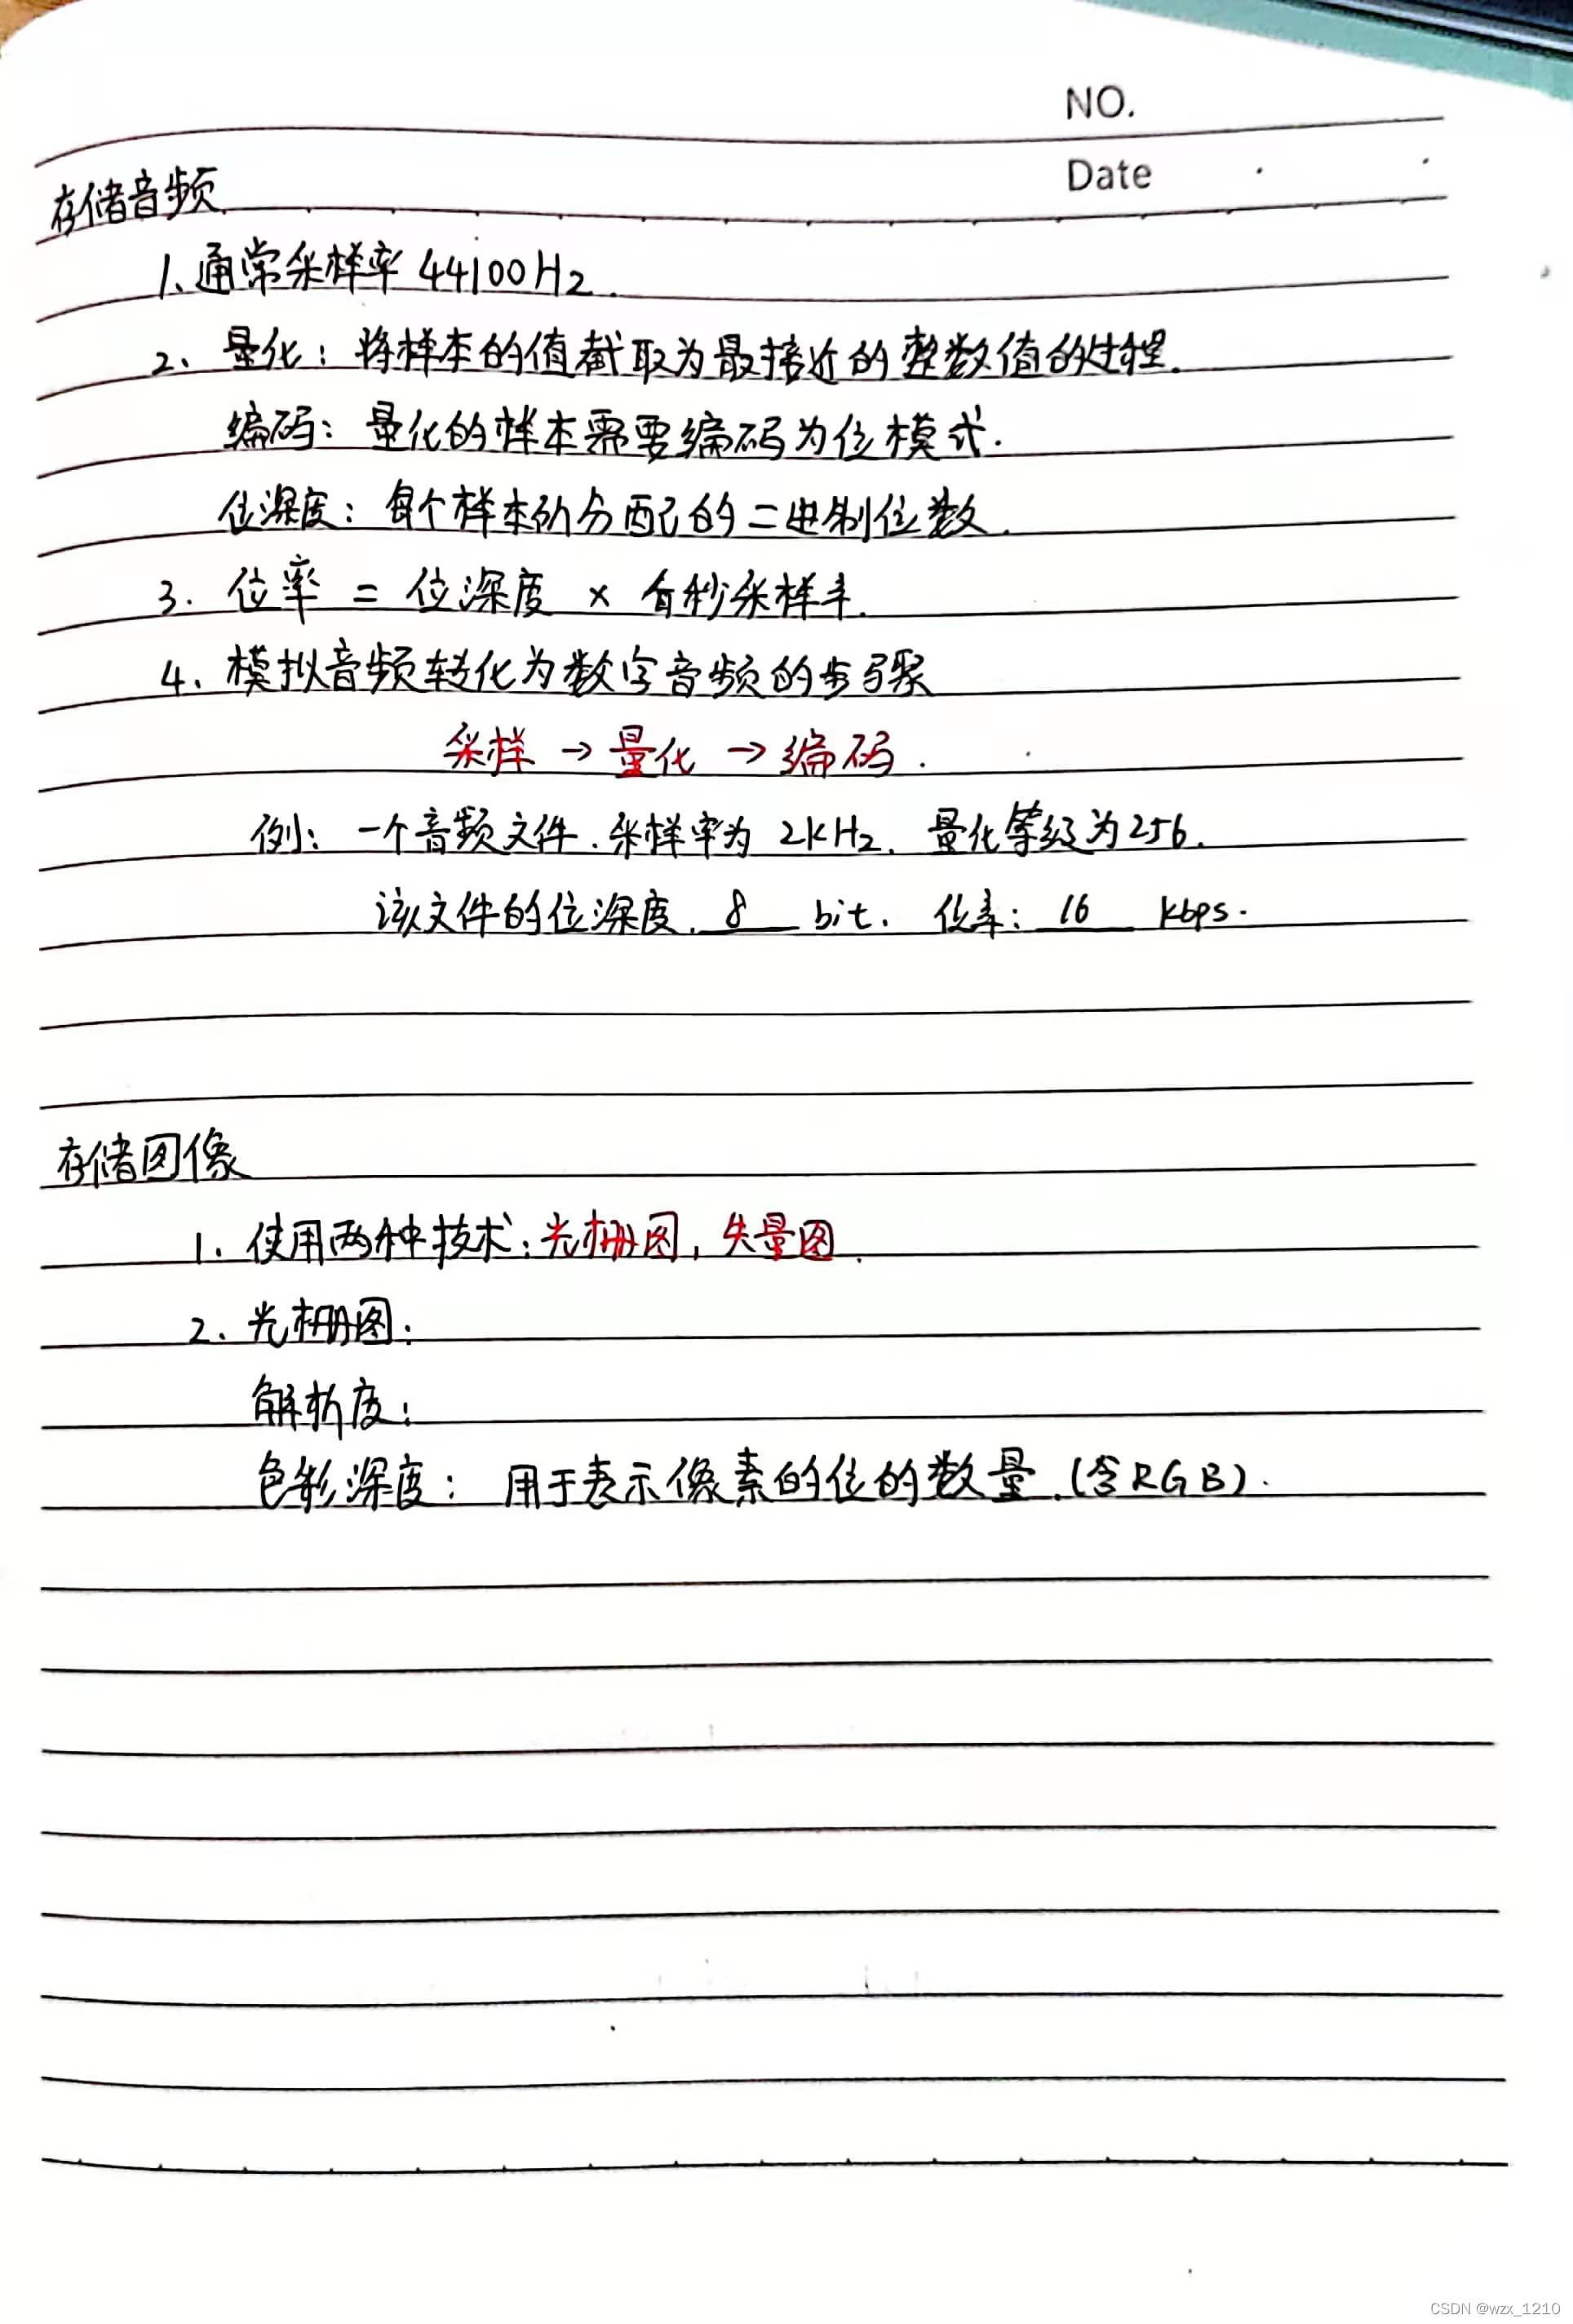 NO.
Date
存储音频
1、通常采样率 44100Hz.
2、量化：将样本的值截取为最接近的整数值的过程.
编码：量化的样本需要编码为位模式.
位深度：每个样本所分配的二进制位数.
3. 位率 = 位深度 × 每秒采样率.
4、模拟音频转化为数字音频的步骤
采样 → 量化 → 编码.
例：一个音频文件.采样率为 2kHz. 量化等级为256.
该文件的位深度. 8 bit. 位率：16 kbps.
存储图像
1、使用两种技术：光栅图，矢量图.
2、光栅图：
解析度：
色彩深度：用于表示像素的位的数量.(含RGB).
CSDN @wzx_1210